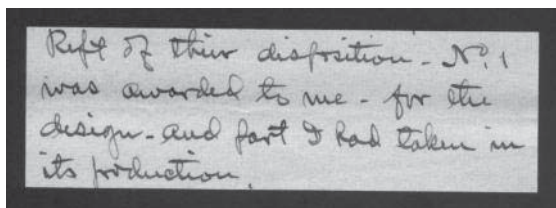 Rept of their disposition - No. 1
was awarded to me - for the
design - and part I had taken in
its production.